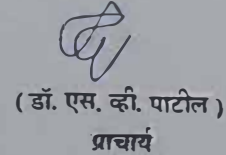 ( डॉ. एस. व्ही. पाटील )
प्राचार्य